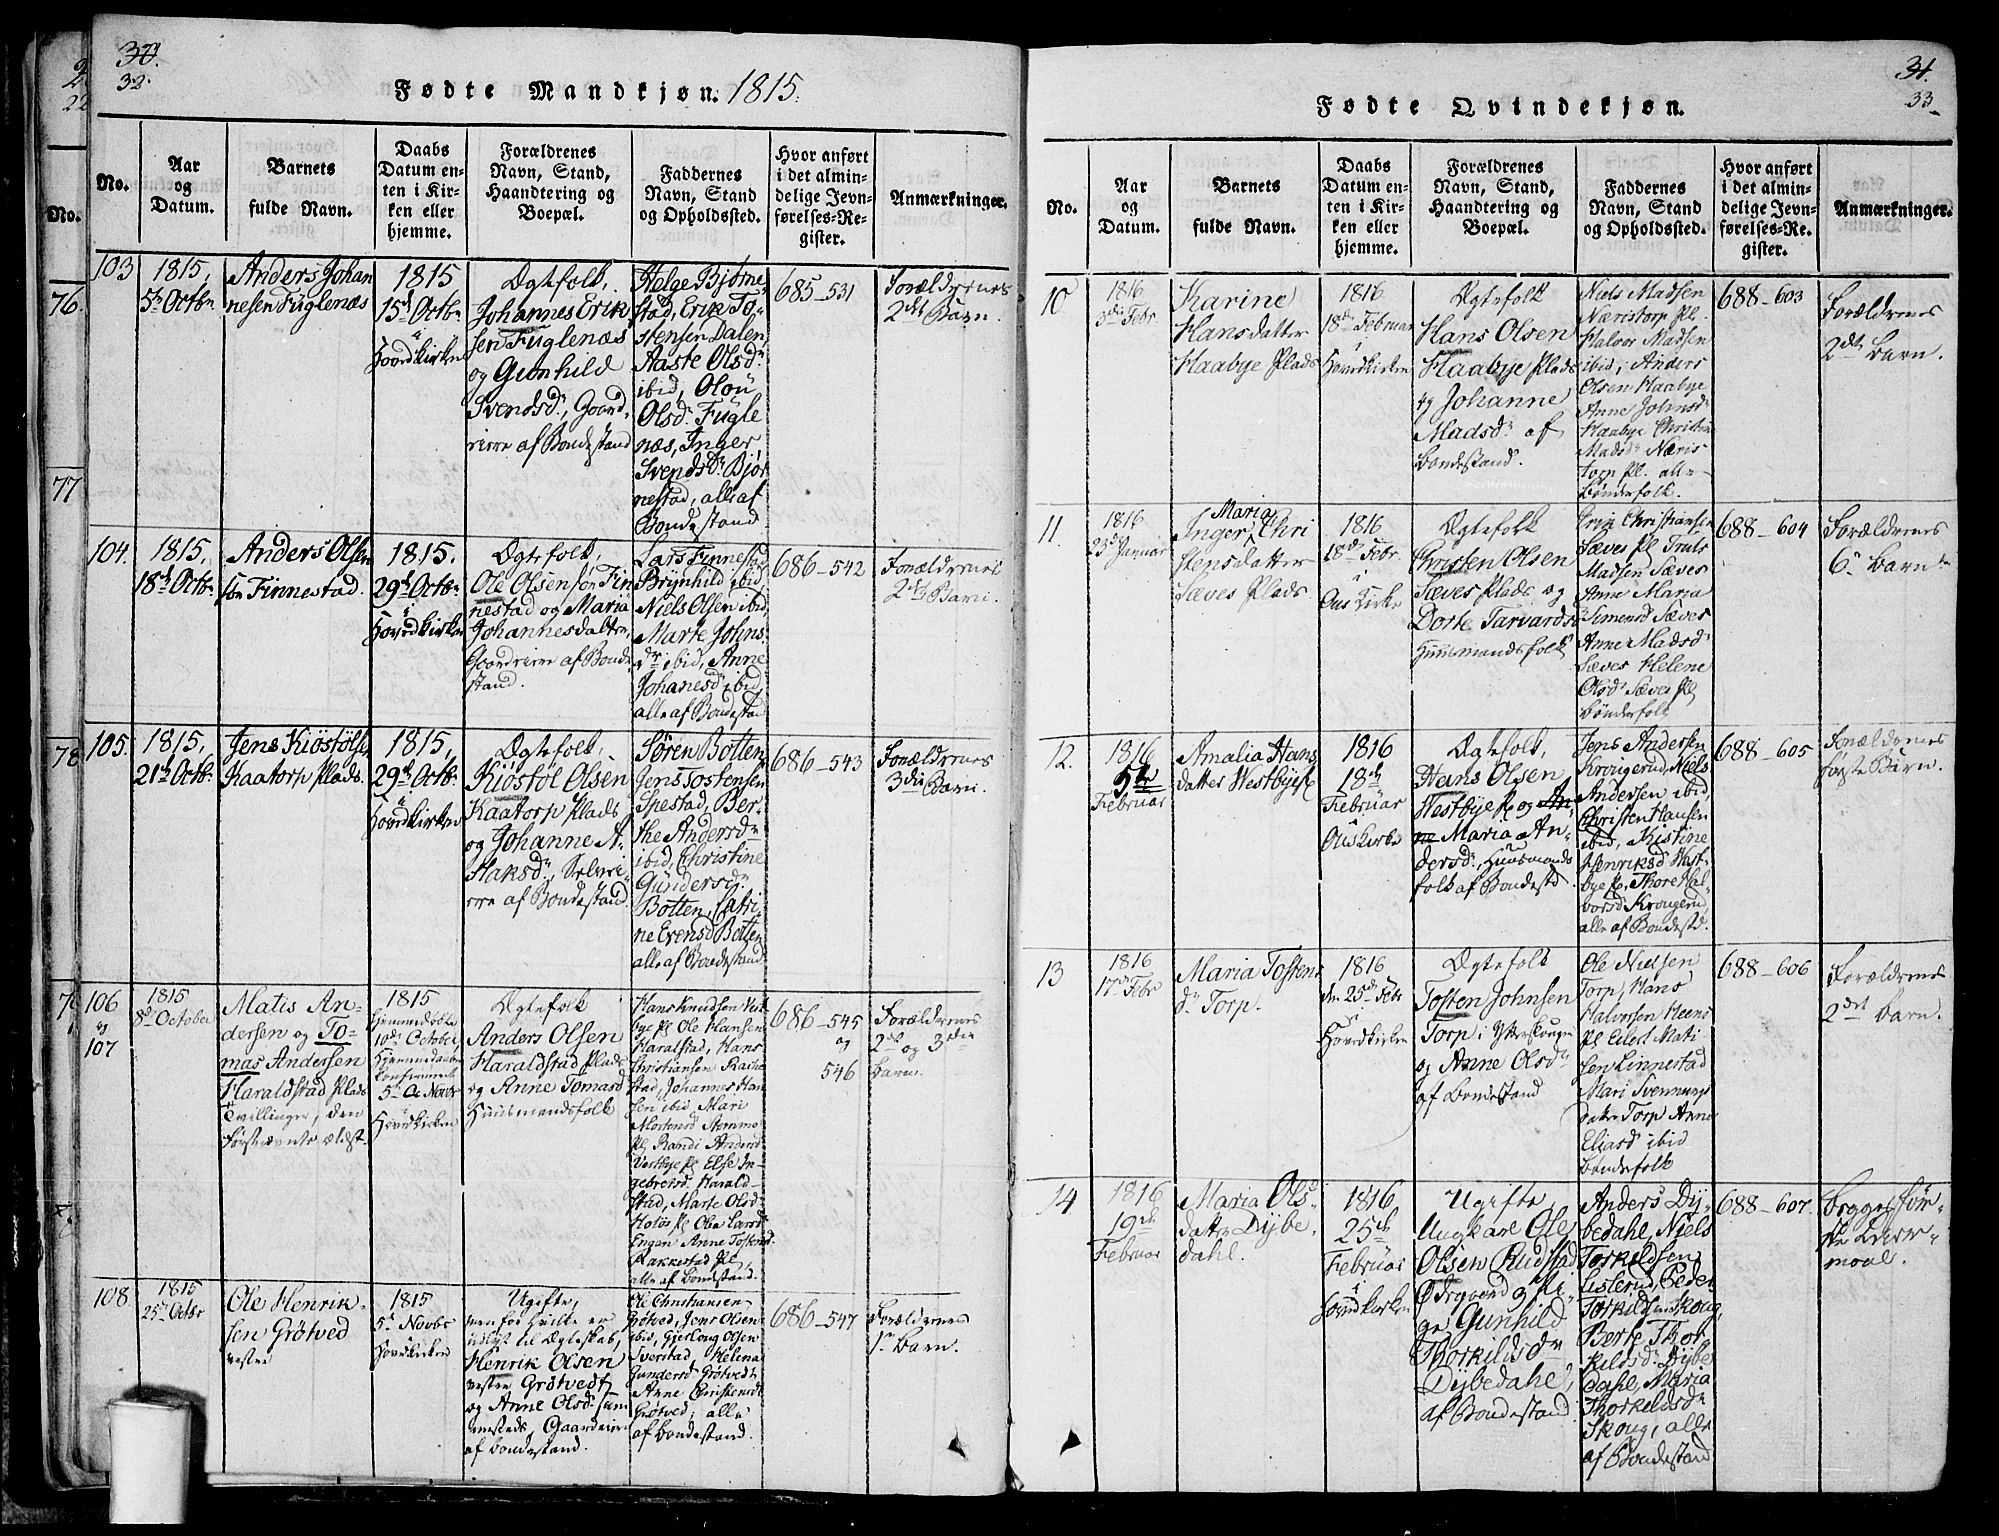 30.
32.
Fødte Mandkjøn. 1815.
No.
Aar
og
Datum.
Barnets
fulde Navn.
Daabs
Datum en-
ten i Kir-
ken eller
hjemme.
Forældrenes
Navn, Stand,
Haandtering og
Boepæl.
Faddernes
Navn, Stand
og Opholdssted.
Hvor anført
i det almin-
delige Jevn-
førelses-Re-
gister.
Anmærkninger.
103
1815,
5te Octbr
Anders Johan
nesen Fuglenæs
1815
15de Octbr
i
Hovedkirken
Ægtefolk,
Johannes Erik
sen Fuglenæs
og Gunhild
Svendsdr, Gaard
af Bondestand
Helge Bjørne
stad, Erik To-
stensen Dalen,
Aaste Olsdr
ibid, Olou
Olsdr Fugle
næs, Inger
Svendsdr Bjør
nestad, alle af
Bondestand
685-531
Forældrenes
2det Barn.
104.
1815,
18de Octbr
Anders Olsen
Finnestad.
1815.
29de Octbr
i
Hovedkirken
Ægtefolk,
Ole Olsen Fin
nestad og Maria
Johannesdatter,
af Bonde
stand.
Lars Finnestad
Brynhild ibid
Niels Olsen ibid
Marte Johns
dr ibid, Anne
Johanesd ibid,
alle af Bondestand
686-542
Forældrenes
2det Barn.
105.
1815,
21de Octbr
Jens Kiöstölsen
Kaatorp Plads.
1815,
29de Octbr
i
Hovedkirken
Ægtefolk,
Kiöstöl Olsen
Kaatorp Plads
og Johanne A-
slaksdr,
af Bondestand.
Søren Botten
Jens Tostensen
Spestad, Ber-
the Andersdr
ibid, Christine
Gundersdr
Botten, Catri-
ne Evensd Botten
alle af Bondestand
686-543
Forældrenes
3die Barn.
106
og
107
1815
8de October
Matis An-
dersen og To-
mas Andersen
Haraldstad Plads
Tvillinger, den
førstnævnte ældst.
1815
Hjemmedøbte
10de October
5te Novbr
i
Hovedkirken
Ægtefolk
Anders Olsen
Haraldstad Plads
og Anne Tomasd
Huusmandsfolk
Hans Knudsen Vest
bye Pl Ole Hansen
Haralstad, Hans
Christiansen
stad, Johannes Han
sen ibid Mari
Mortensd
Pl Randi Andersd
Vestbye Pl Else In-
gebretsd Harald-
stad, Marte Olsdr
Pl Olea Larsdr
Engen Anne Tostensd
Rakkestad Pl,
alle af Bondestand.
686-545
og
546
Forældrenes
2det og 3die
Barn.
108
1815
25de Octbr
Ole Henrik-
sen Grötved
vestre
1815
5te Novbr
Hovedkirken
Ugifte,
til Ægteskab,
Henrik Olsen
vestre Grötvedt
og Anne Olsdr
af Bondestand.
Ole Christiansen
Grötved, Jens Olsen
ibid, Gjerloug Olsen
Sverstad, Helena
Gundersd Grötvedt
Anne Christensd
Grötved, alle
af Bondestand.
686-547
Forældrenes
1te Barn.
76
77
78
31.
33
Fødte Qvindekjøn.
No.
Aar
og
Datum.
Barnets
fulde Navn.
Daabs
Datum en-
ten i Kir-
ken eller
hjemme.
Forældrenes
Navn, Stand,
Haandtering og
Boepæl.
Faddernes
Navn, Stand
og Opholdssted.
Hvor anført
i det almin-
delige Jevn-
førelses-Re-
gister.
Anmærkninger.
10
1816
3die Febr
Karine
Hansdatter
Haabye Plads
1816
18de Februar
i
Hovedkirken
Ægtefolk
Hans Olsen
Haabye Plads
og Johanne
Madsdr af
Bondestand.
Niels Madsen
Næristorp Pl.
Halvor Madsen
ibid, Anders
Olsen Haabye
Anne Johnsdr
Haabye Christin
Madsdr Næris
torp Pl. alle
Bønderfolk.
688-603
Forældrenes
2det Barn.
11.
1816
23de Januar
Maria
Inger Chri
stensdatter
Sæves Plads
1816
18de Febr.
i
Ous Kirke
Ægtefolk
Christen Olsen
Sæves Plads og
Dorte Tarvardsdr
Huusmandsfolk
Christiansen
Sæves Pl Truls
Madsen Sæves
Anne Maria
Simensd Sæves
Anne Madsdr
Sæves Helene
Olsdr Sæves Pl
Bønderfolk
688-604
Forældrenes
6te Barn
12.
1816
5te
Februar
Amalia Hans
datter Westbye Pl
1816
18de
Februar
i
Ous Kirke
Ægtefolk,
Hans Olsen
Westbye Pl og An-
ne Maria An-
dersdr, Huusmands
folk af Bondestd.
Jens Andersen
Krougerud, Niels
Andersen ibid,
Christen Hansen
ibid, Kistine
Henriksd West-
bye Pl, Thore Hal-
vorsd Krougerud
alle af Bondestd.
688-605
Forældrenes
første Barn.
13
1816
17de Febr
Maria Tostens
dr Torp.
1816
den 25de Febr
i
Hovedkirken
Ægtefolk
Tosten Johnsen
Torp i Ytterskougen
og Anne Olsdr
af Bondestand
Ole Nielsen
Torp, Hans
Halvorsen Heens
Pl Eilert Mati
sen Linnestad
Mari Svennungs
datter Torp Anne
Eliasd ibid
Bønderfolk
688-606
Forældrenes
2det Barn.
14
1816
19de
Februar
Maria Ols
datter Dybe-
dahl.
1816
25de
Februar
i
Hovedkirken
Ugifte
Ungkarl Ole
Olsen Rudstad
Ødegaard og Pi-
ge Gunhild
Thorkildsdr
Dybedahl,
af Bondestand
Anders Dy-
bedahl, Niels
Torkildsen
Listerud, Peder
Torkildsen Skoug,
Berte Thor
kildsdr Dybe
dahl, Maria
Thorkildsdr
Skoug, alle
af Bondestand
688-607.
Begges før-
ste Leier-
maal.